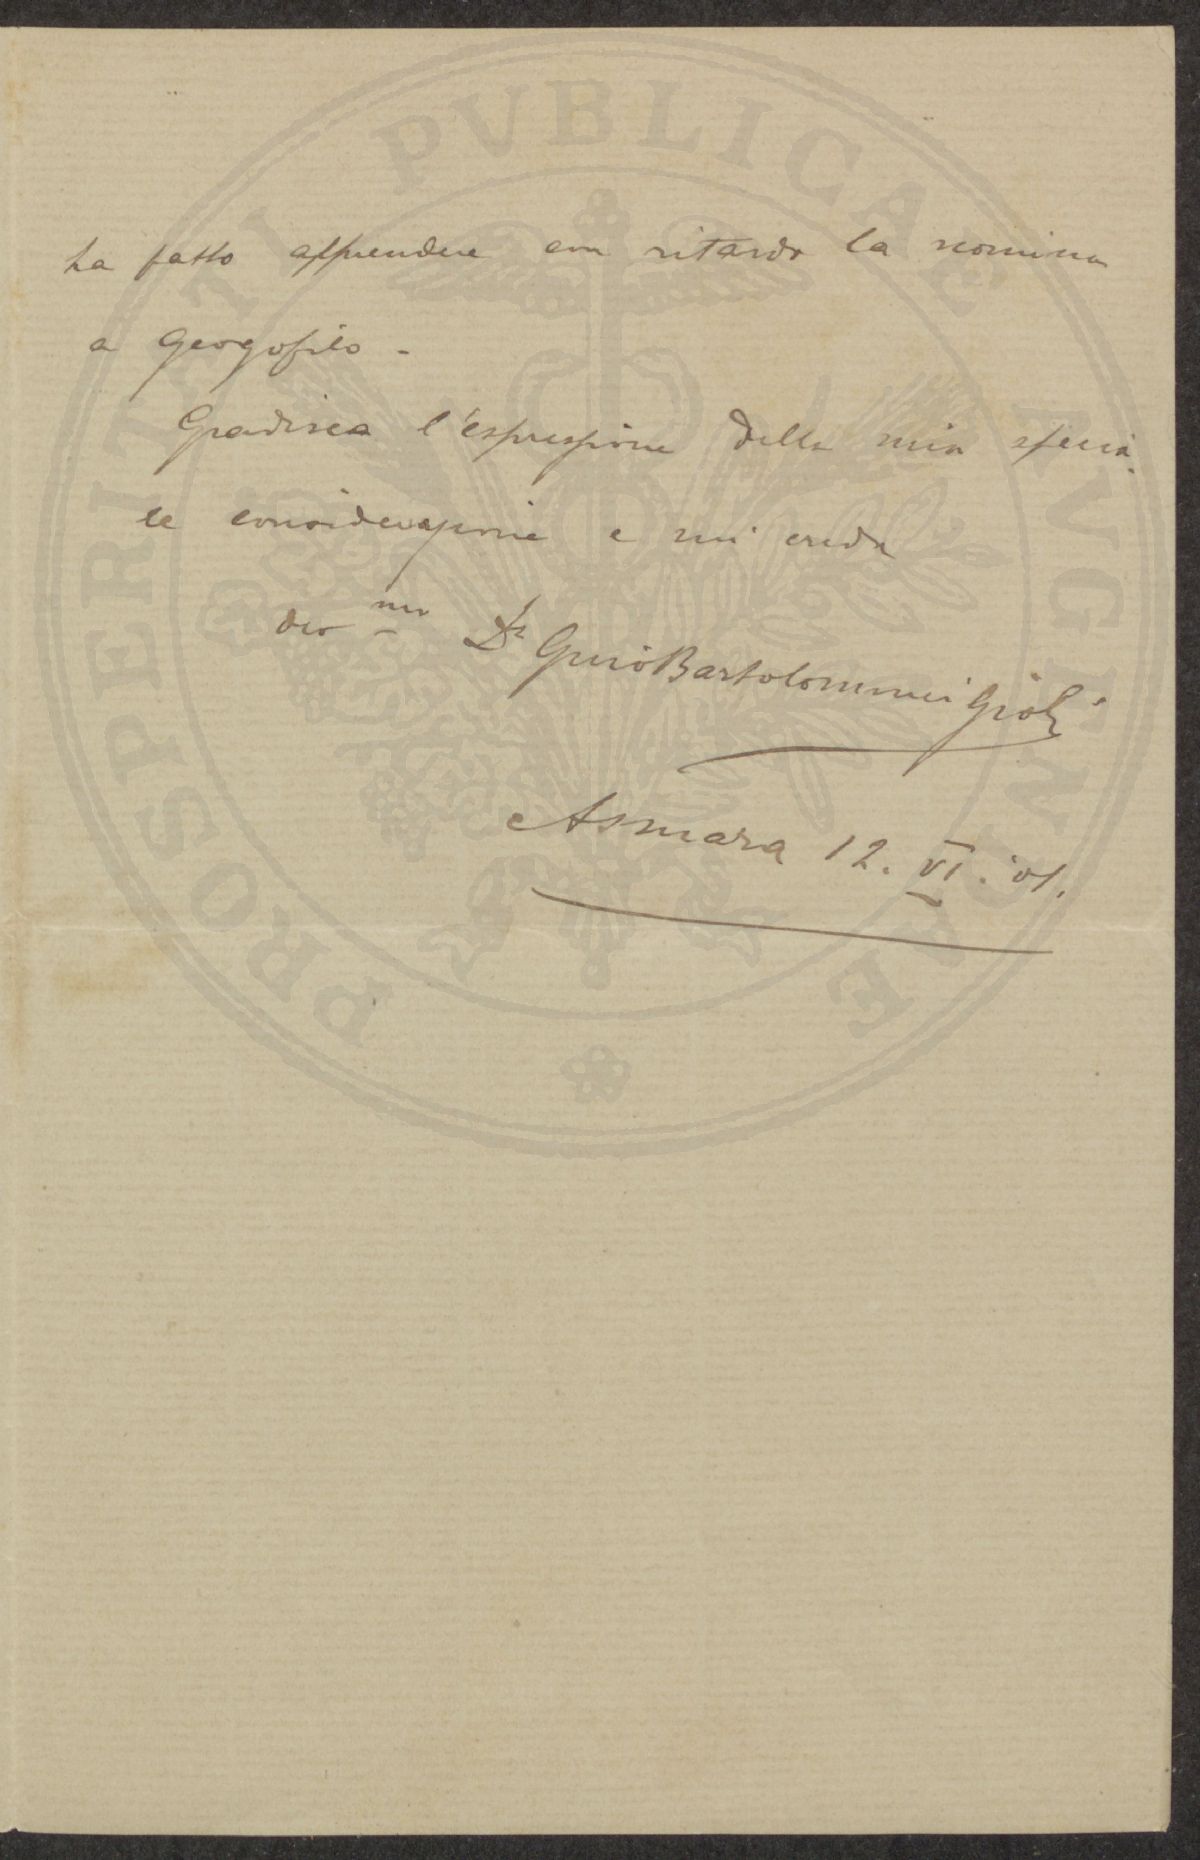 ha fatto apprendere con ritardo la nomina
a Georgofilo -
Gradisca l'espressione della mia specia
le considerazione e mi creda
dev mo Dr Gino Bartolommei Gioli
Asmara 12. VI. 01.
PROSPERITATI PVBLICAE AVGENDAE